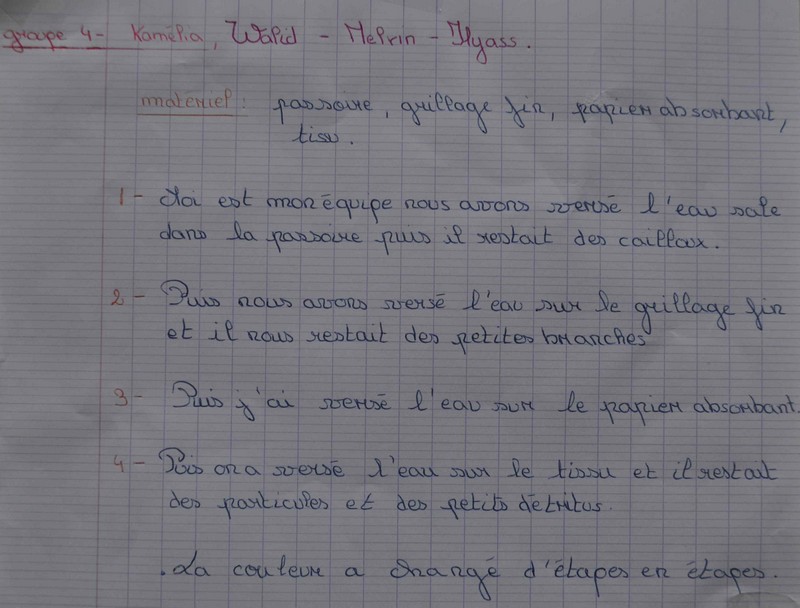 groupe 4- Kamélia, Walid - Helrin - Ilyass.
materiel : passoire, grillage fin, papier absorbant,
tissu.
1 - Moi est mon équipe nous avons versé l'eau sale
dans la passoire puis il restait des cailloux.
2 - Puis nous avons versé l'eau sur le grillage fin
et il nous restait des petites branches
3 - Puis j'ai versé l'eau sur le papier absorbant.
4 - Puis on a versé l'eau sur le tissu et il restait
des particules et des petits détritus.
. La couleur a changé d'étapes en étapes.